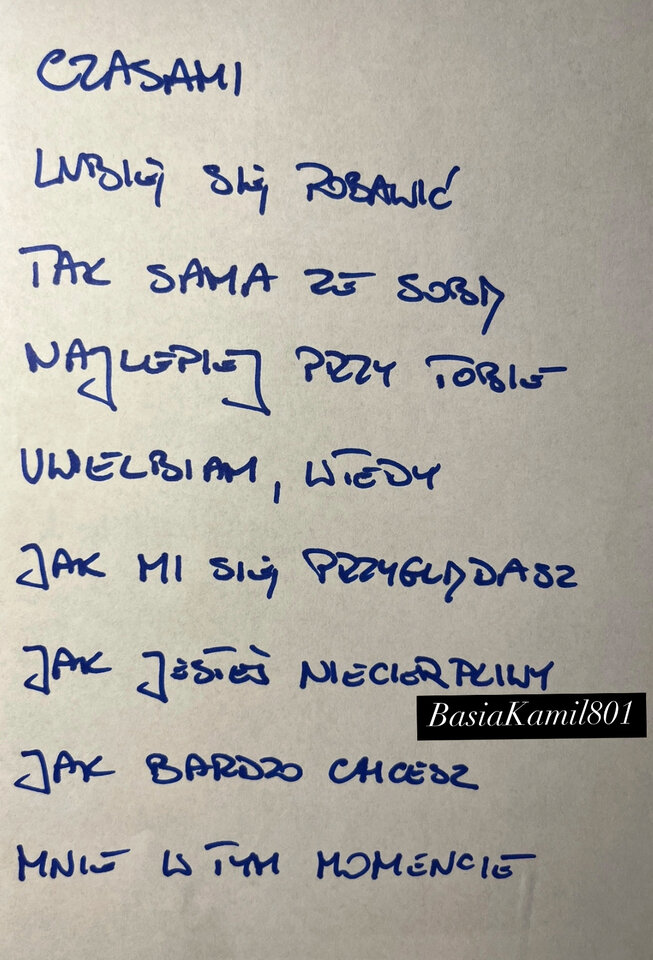 CZASAMI
LUBIĘ SIĘ POBAWIĆ
TAK SAMA ZE SOBĄ
NAJLEPIEJ PRZY TOBIE
UWIELBIAM, WTEDY
JAK MI SIĘ PRZYGLĄDASZ
JAK JESTEŚ NIECIERPLIWY
BasiaKamil801
JAK BARDZO CHCESZ
MNIE W TYM MOMENCIE